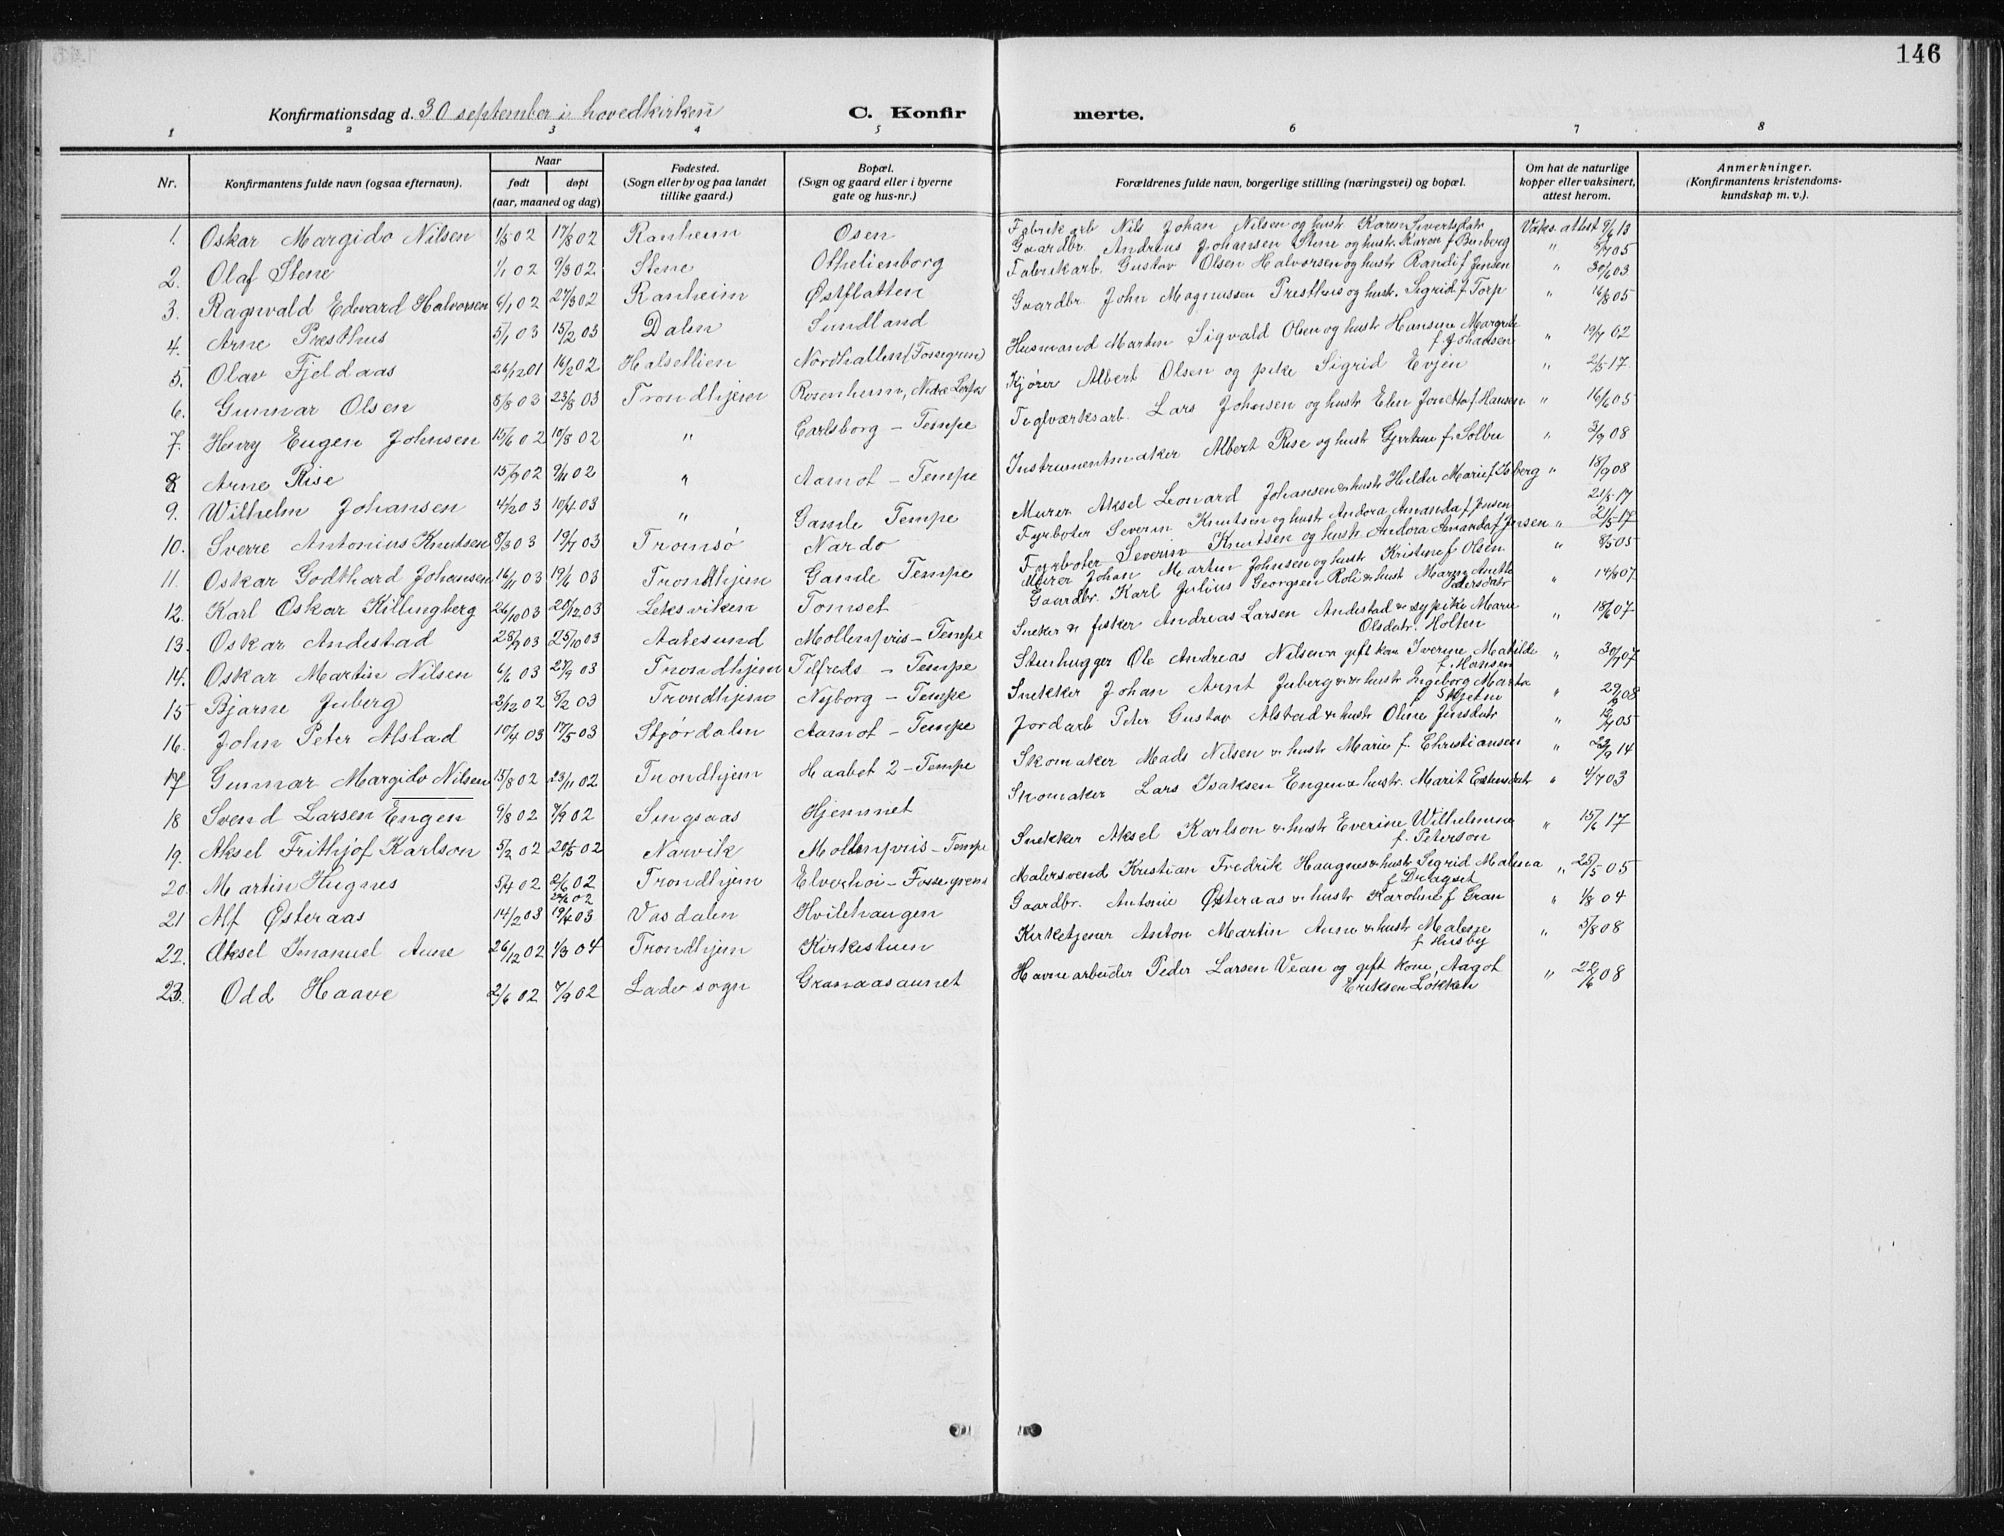 146
Konfirmationsdag d. 30 september i hovedkirken
C. Konfir merte.
1 2 3 4 5 6 7 8
Nr. Konfirmantens fulde navn (ogsaa efternavn). Naar født døpt (aar, maaned og dag) Fødested. (Sogn eller by og paa landet tillike gaard.) Bopæl. (Sogn og gaard eller i byerne gate og hus-nr.) Forældrenes fulde navn, borgerlige stilling (næringsvei) og bopæl. Om hat de naturlige kopper eller vaksinert, attest herom. Anmerkninger. (Konfirmantens kristendoms-kundskap m. v.).
1. Oskar Margido Nilsen 1/5 02 17/8 02 Ranheim Osen Fabrikarb Nils Johan Nilsen og hustr Karen Sivertsdatr Vaks. attest 9/6 13
2. Olaf Stene 1/1 02 9/3 02 Stene Othelienborg Gaardbr. Andreas Johansen Stene og hustr. Karen f. Buberg " 8/7 05
3. Ragnvald Edvard Halvorsen 6/1 02 27/3 02 Ranheim Østflatten Fabrikarb. Gustav Olsen Halvorsen og hustr Randi f Jensen " 30/6 03
4. Arne Presthus 5/1 03 15/2 03 Dalen Sundland Gaardbr. John Magnussen Presthus og hust. Sigrid f Torp " 16/8 05
5. Olav Fjeldaas 26/12 01 16/2 02 Halsetlien Nordhallen (Fossegrend) Husmand Martin Sigvald Olsen og hustr Hansine Margrete f Johansen " 19/7 02
6. Gunnar Olsen 8/8 03 23/8 03 Trondhjem Rosenheim, Nedre Lerfos Kjører Albert Olsen og pike Sigrid Evjen " 2/5 17
7. Henry Eugen Johnsen 15/6 02 10/8 02 " Carlsborg - Tempe Teglværksarb. Lars Johnsen og hustr Elen Jonetta f. Hansen " 16/6 05
8. Arne Rise 15/9 02 9/11 02 " Aamot - Tempe Instrumentmaker Albert Rise og hustr Gjertine f. Solbu " 3/9 08
9. Wilhelm Johansen 4/2 03 10/4 03 " Gamle Tempe Murer Aksel Leonard Johansen & hustr Hilder Marie f. Isberg " 18/9 08
10. Sverre Antonius Knutsen 8/3 03 19/7 03 Tromsø Nardo Fyrbøter Severin Knutsen og hustr Andora Amanda f Jensen 21/5 17
Fyrbøter Severin Knutsen og hustr Andora Amanda f Jensen " 21/5 17
11. Oskar Godthard Johansen 16/1 03 19/6 03 Trondhjem Gamle Tempe Murer Johan Martin Johnsen og hustr Kristine f Olsen " 8/5 05
12. Karl Oskar Killingberg 26/10 03 25/12 03 Leksviken Tomset Gaardbr. Karl Julius Georgsen Roli & hust Maren Anette Pedersdatr " 14/6 07
13. Oskar Andestad 28/9 03 25/10 03 Aalesund Mollenpris - Tempe Sneker & fisker Andreas Larsen Andestad & sypike Marie Olsdatr. Holten " 18/6 07
14. Oskar Martin Nilsen 6/6 03 27/9 03 Trondhjem Tilfreds - Tempe Stenhugger Ole Andreas Nilsen & gift kone Iverine Matilde f. Hansen " 30/7 07
15 Bjarne Juberg 2/12 02 8/2 03 Trondhjem Nyborg - Tempe Snekker Johan Arnt Juberg & hustr Ingeborg Marta f Skjetne " 29/9 08
16. John Peter Alstad 10/4 03 17/5 03 Stjørdalen Aamot - Tempe Jordarb Peter Gustav Alstad & hustr Oline Jensdatr " 12/7 05
17 Gunnar Margido Nilsen 15/8 02 23/11 02 Trondhjem Haabet 2 - Tempe Skomaker Mads Nilsen & hustr Marie f. Christiansen " 23/9 14
18 Svend Larsen Engen 9/8 02 7/9 02 Singsaas Hjemmet Skomaker Lars Isaksen Engen & hustr. Marit Estensdatr " 4/7 03
19. Aksel Frithjof Karlson 5/2 02 20/5 02 Narvik Mollenpris - Tempe Snekker Aksel Karlson & hustr Everine Wilhelmine f. Peterson " 15/6 17
20. Martin Hugnes 5/4 02 2/6 02 Trondhjem Elverhoi - Fossegrend Malersvend Kristian Fredrik Haugnes & hustr Sigrid Malena f Dragset " 25/5 05
21 Alf Østeraas 14/2 03 19/4 03 Vasdalen Hvilehaugen Gaardbr. Antonie Østeraas & hustr Karoline f Gran " 1/8 04
22. Aksel Imanuel Aune 26/12 02 1/3 04 Trondhjem Kirkestuen Kirketjener Anton Martin Aune & hustr Malene f Husby " 5/8 08
23. Odd Haave 2/6 02 7/9 02 Lade sogn Granaasaunet Havnearbeider Peder Larsen Vean og gift kone Aagot Eriksen Løkken " 22/6 08